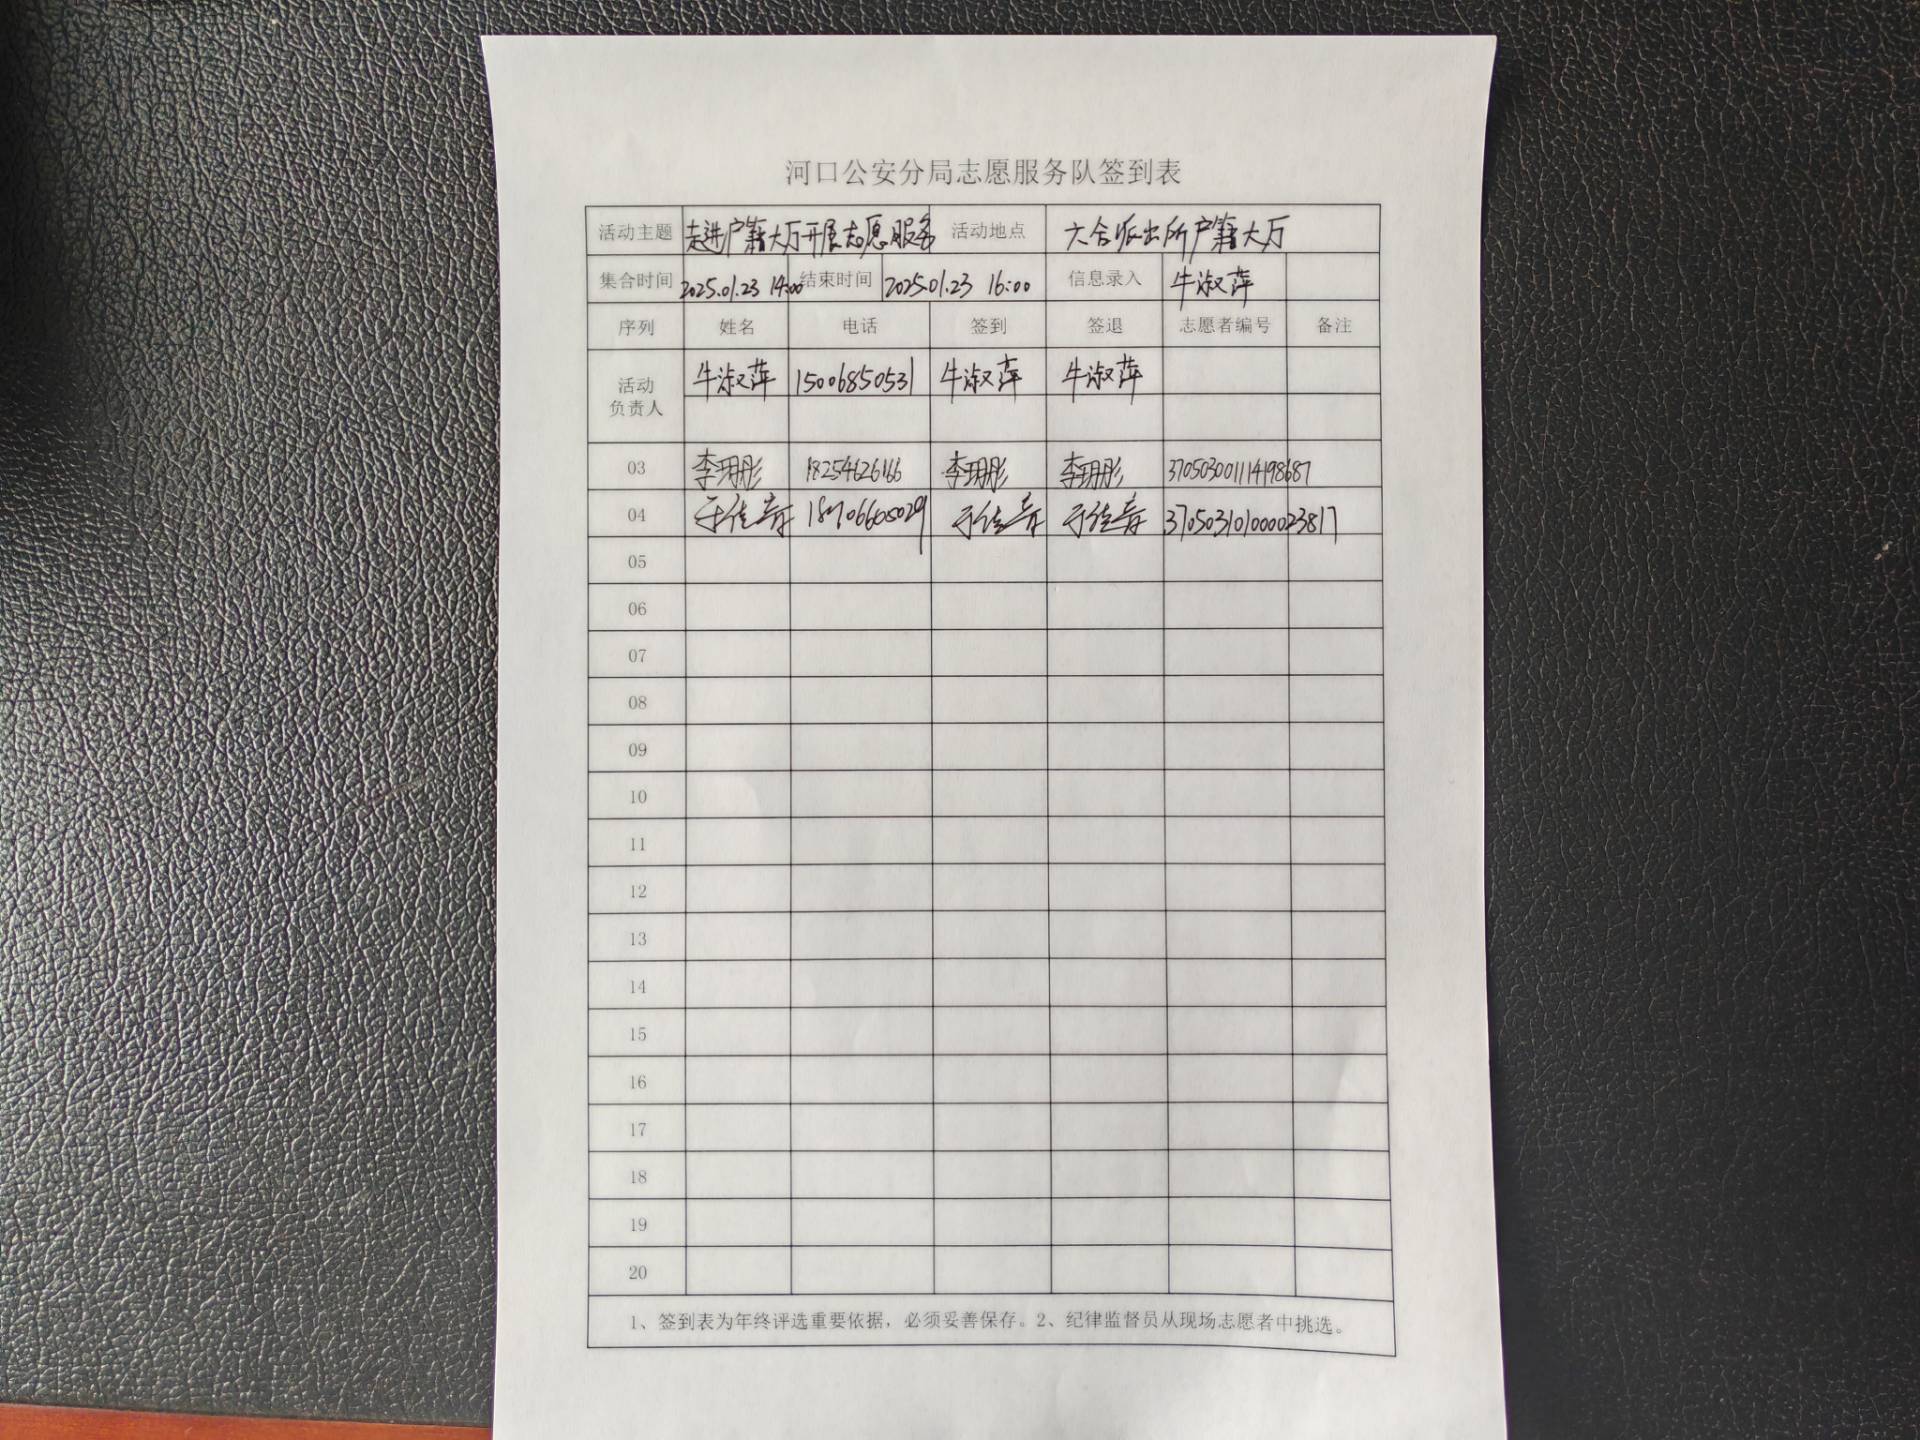 河口公安分局志愿服务队签到表
活动主题 走进户籍大厅开展志愿服务 活动地点 六合派出所户籍大厅
集合时间 2025.01.23 14:00 结束时间 2025.01.23 16:00 信息录入 牛淑萍
序列 姓名 电话 签到 签退 志愿者编号 备注
活动
负责人 牛淑萍 15006850531 牛淑萍 牛淑萍
03 李玥彤 18254626166 李玥彤 李玥彤 370503001114198687
04 于佳音 于佳音 于佳音 370503101000023817
05
06
07
08
09
10
11
12
13
14
15
16
17
18
19
20
1、签到表为年终评选重要依据，必须妥善保存。2、纪律监督员从现场志愿者中挑选。